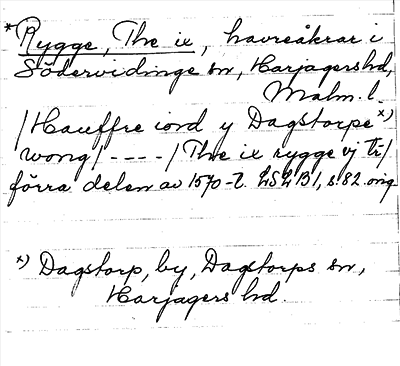 *Rygge, The ix, havreåkrar i
Södervidinge sn, Harjagers hd,
Malm. l.
/Hauffre iord y Dagstorpe x)
wong/----/The ix rygge vj tr/
förra delen av 1570-t. LSLB1, s. 82 orig
x) Dagstorp, by, Dagstorps sn,
Harjagers hd.